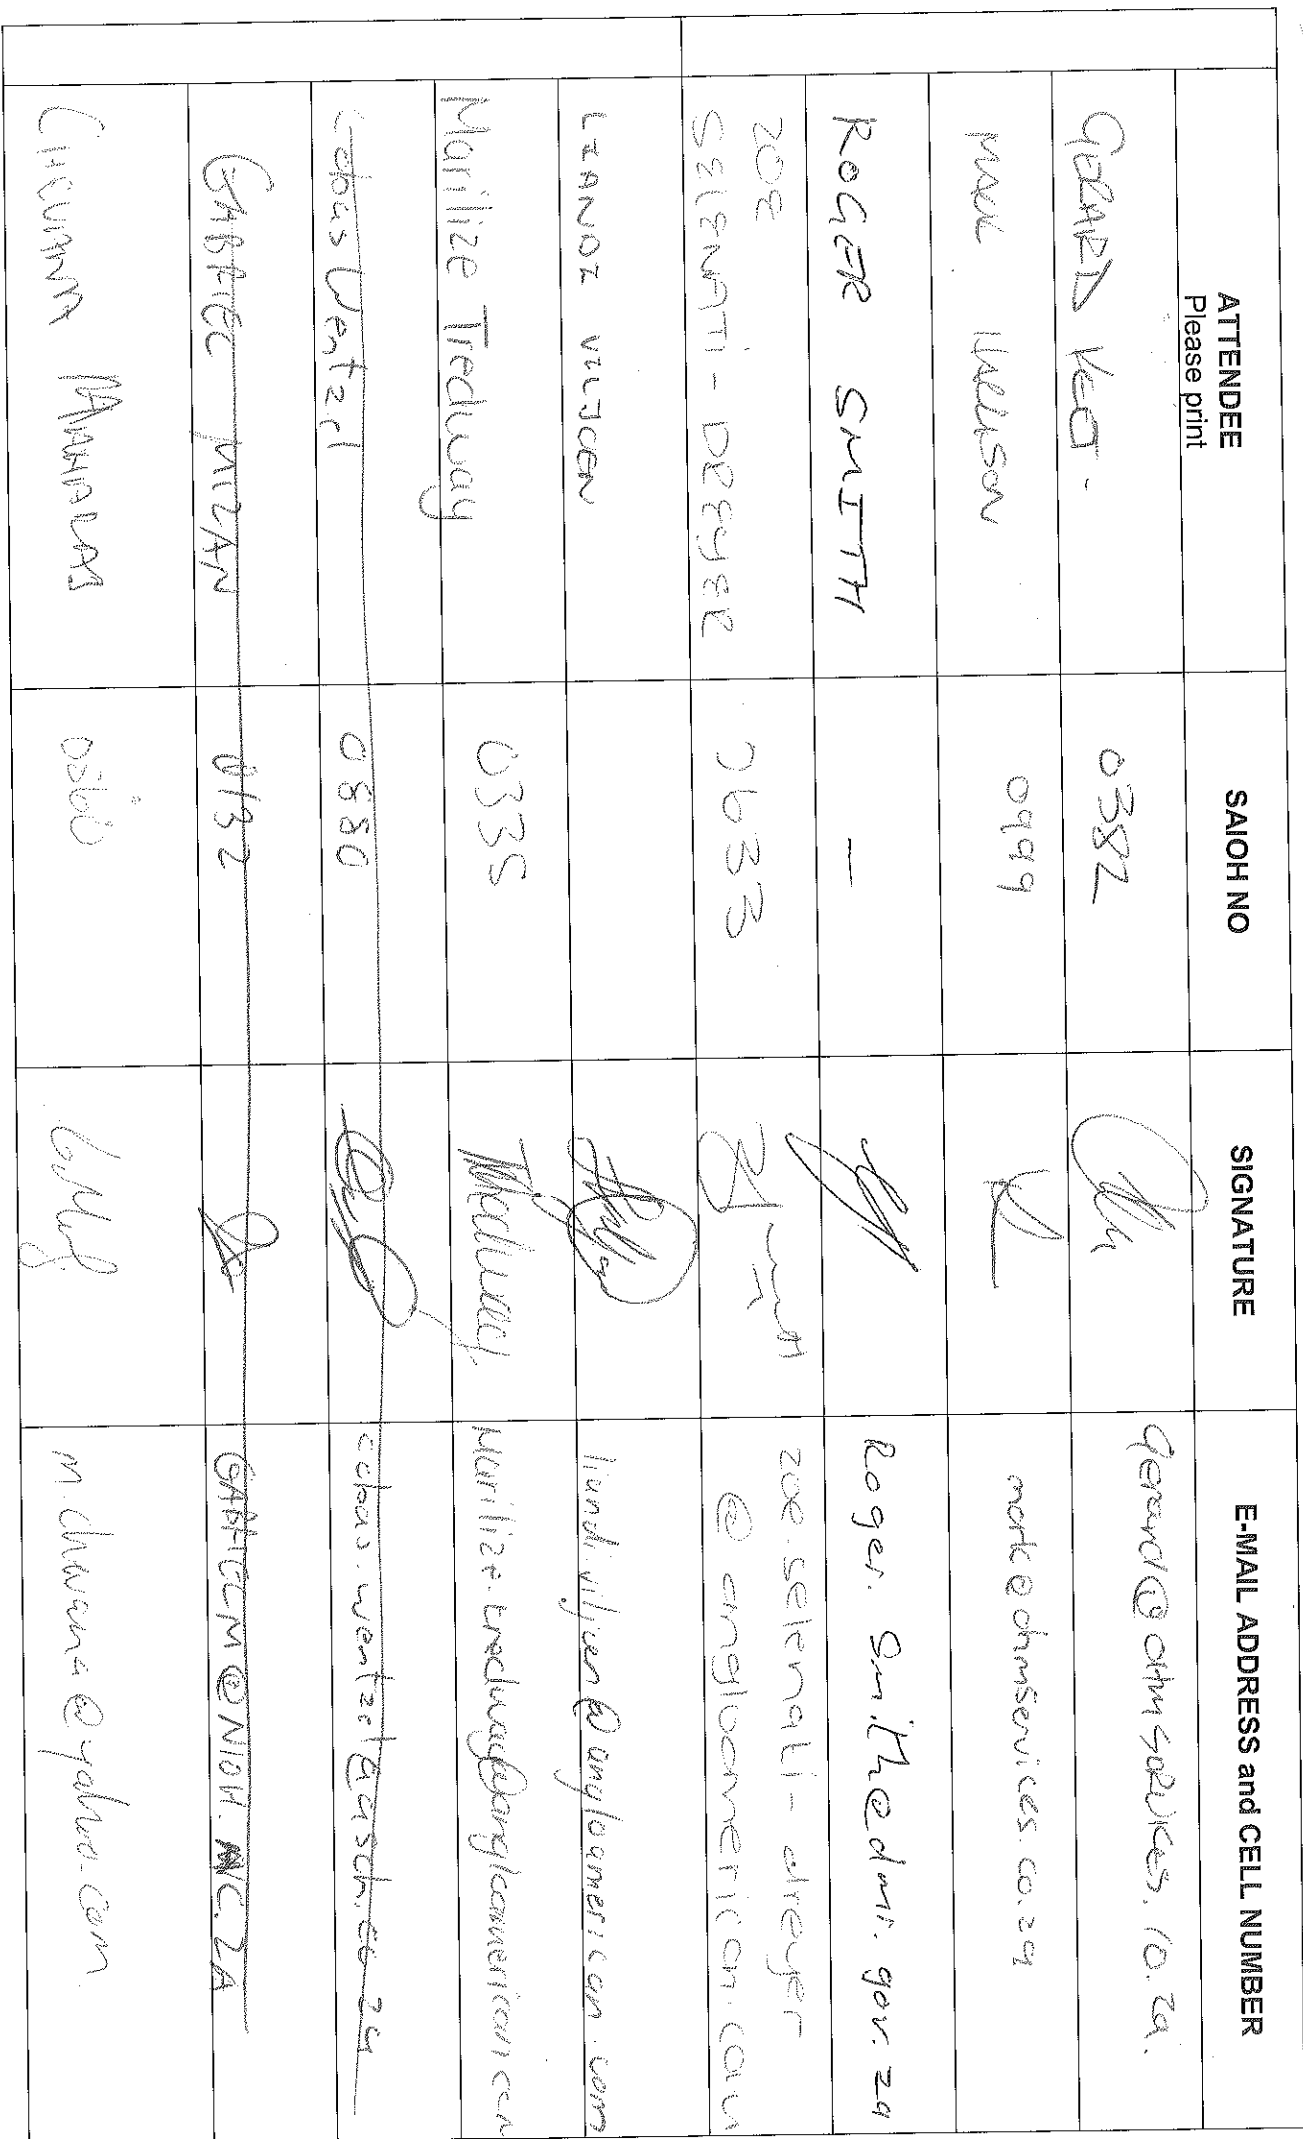 ATTENDEE
Please print
SAIOH NO
SIGNATURE
E-MAIL ADDRESS and CELL NUMBER
GERARD
0382
Gerard@ohmservices.co.za.
MARK HARRISON
0999
mark@ohmservices.co.za
ROGER SMITH
—
Roger.Smith@dmr.gov.za
ZOE
SELENATI-DREYER
0633
zoe.selenati-dreyer
@angloamerican.com
LIANDI VILJOEN
liandi.viljoen@angloamerican.com
Marilize Tredway
0335
Tredway
Marilize.tredway@angloamerican.com
Cobus Wentzel
0880
GABRIEL MIZAN
0132
CHIVANA MAHARAS
m.chivana@yahoo.com.